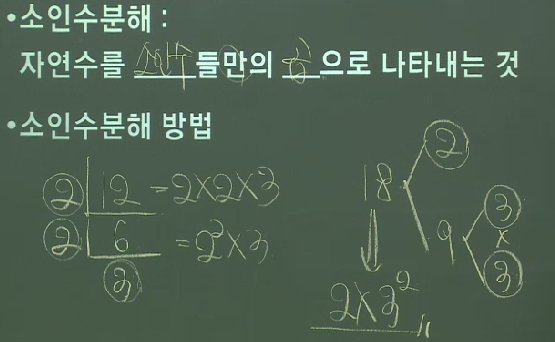 •소인수분해 :
자연수를 소인수들만의 곱으로 나타내는 것
•소인수분해 방법
2 12 = 2×2×3
2 6 = 2²×3
3
18 2
9 3
×
3
2×3²